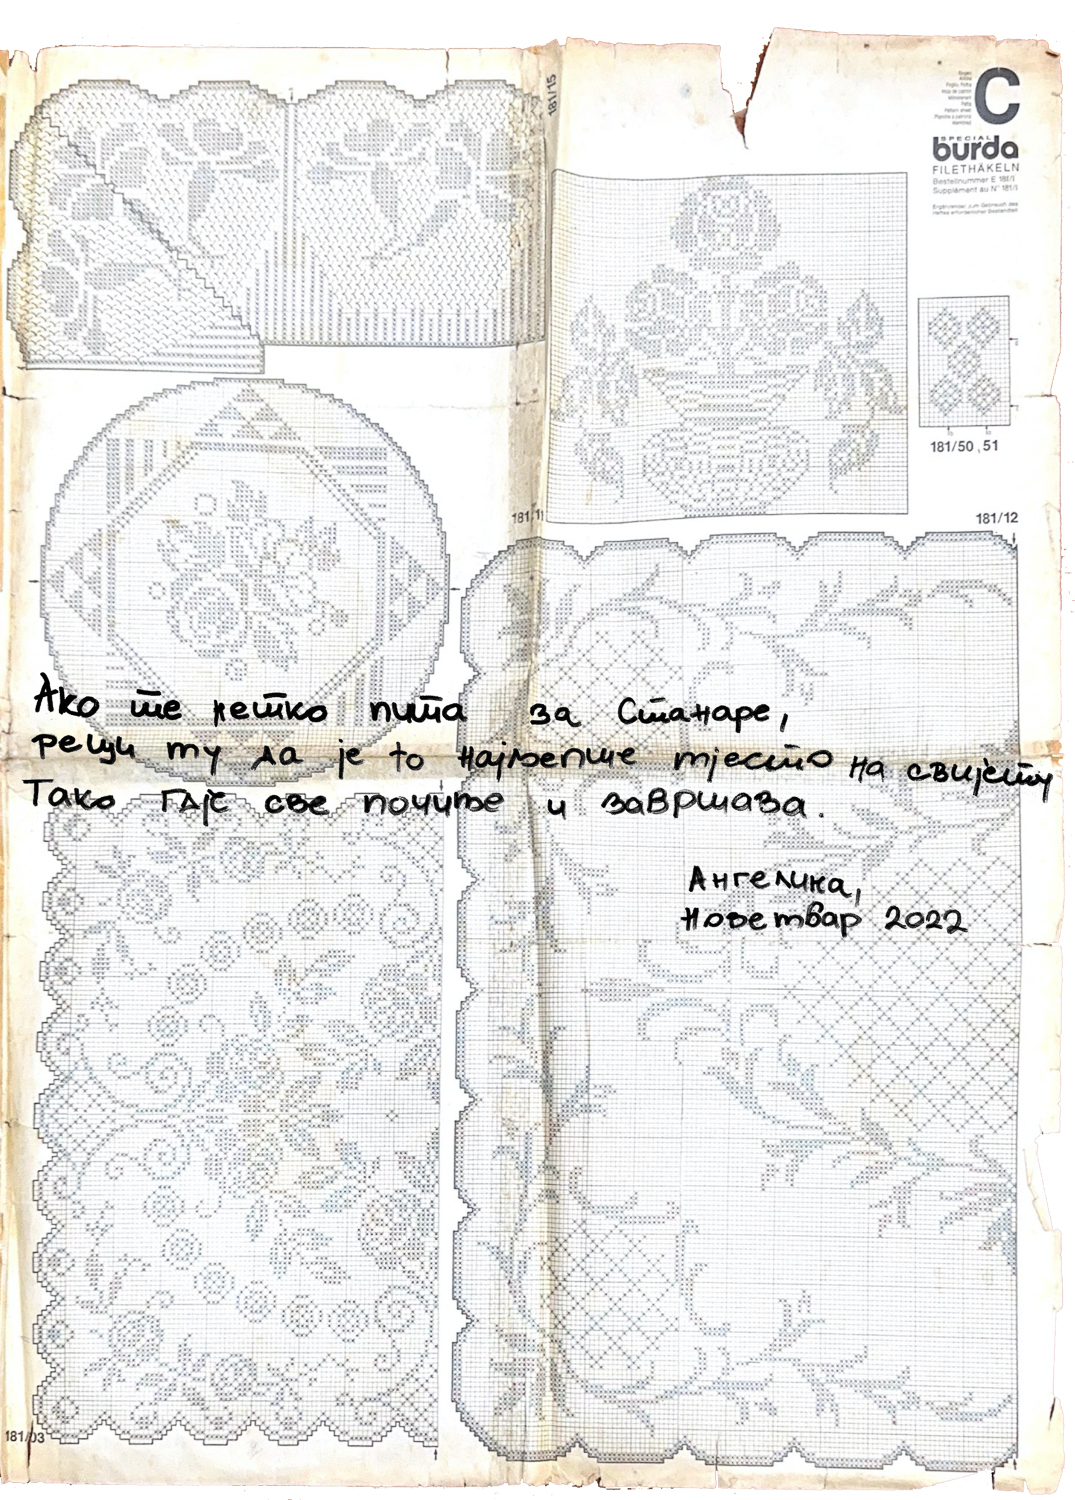 181/15
C
SPECIAL
burda
FILETHÄKELN
Bestellnummer E 181/I
Supplément au N° 181/I
181/50, 51
181/11
181/12
Ако те нетко пита за Станаре,
рећи му да је то најљепше мјесто на свијету
Тамо гдје све почиње и завршава.
Ангелика,
Новембар 2022
181/03